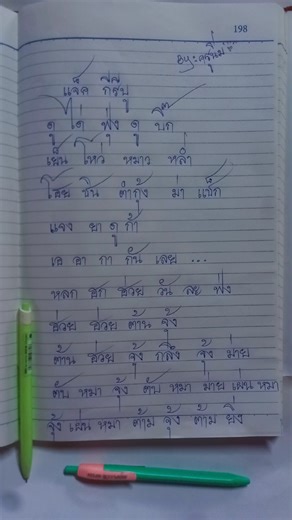 198
By:ครูโม่
แจ็ค กี่รีบู
ดู ไต่ ฟุ่ง ดู บิ๊ก
เย็น ไหว่ หมาว หล่ำ
โฮย ซิน ตำกุ้ง ม่า แข็ก
แจง ยา ดู ก้า
เฮ ฮา กา กัน เลย ...
หลก ฮก ฮ่วย วัน สะ ฟ่ง
ฮ่วย ฮ่วย ต้าน จุ้ง
ต้าน ฮ่วย จุ้ง กลิ้ง จุ้ง ม่าย
ตับ หมา จุ้ง ตับ หมา ม่าย เผ่น หมา
จุ้ง เผ่น หม่า ต้าม จุ้ง ต้าม ยิ่ง